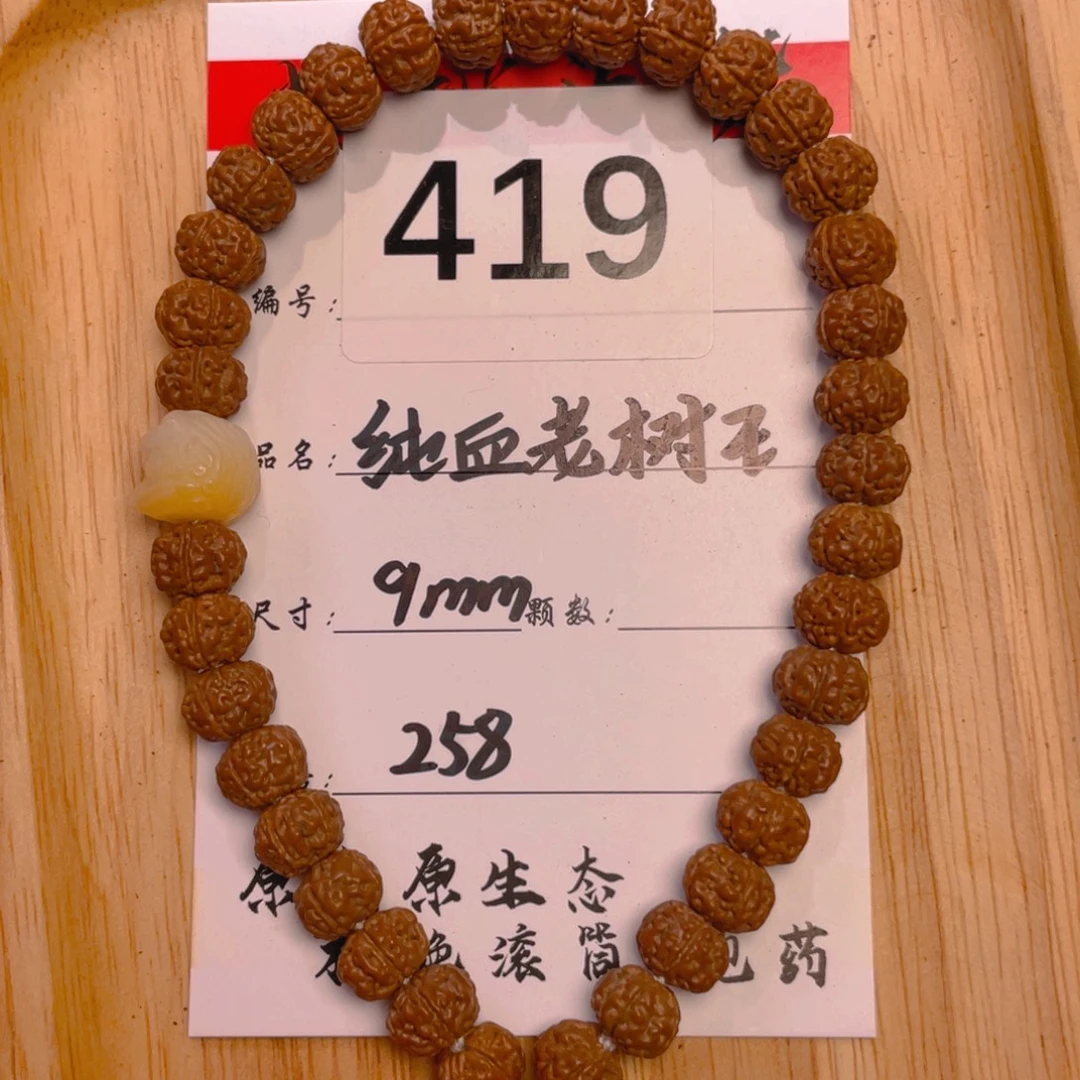 419
编号:
品名: 纯血老树王
尺寸: 9mm 颗数:
: 258
原 原生态
绝滚筒 包药